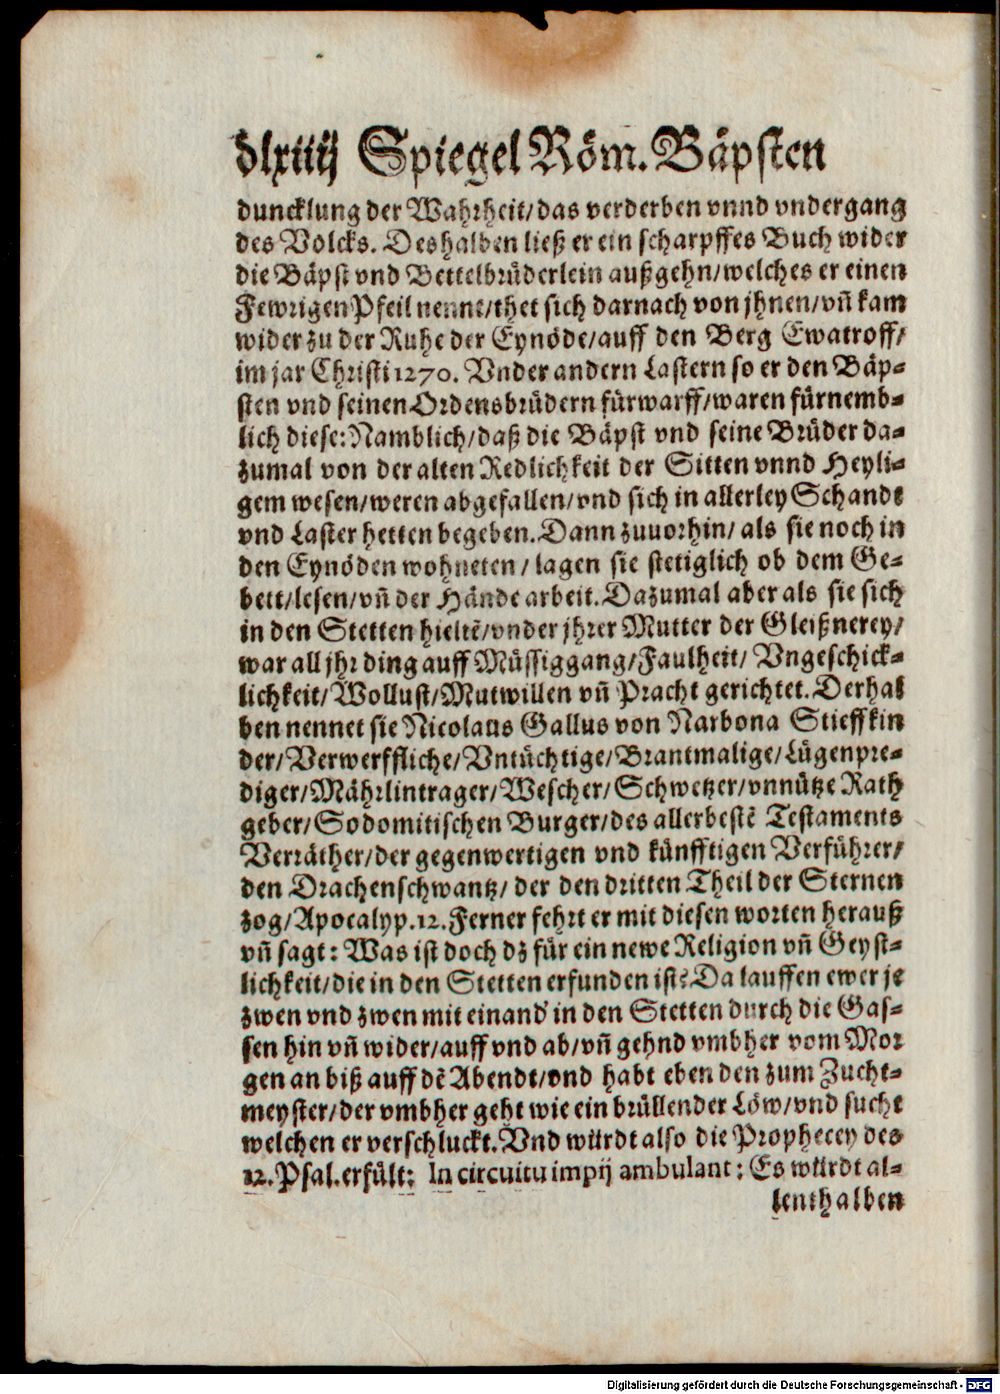 dlxiiij Spiegel Röm. Bäpsten
duncklung der Wahrheit/das verderben vnnd vndergang
des Volcks. Deshalben ließ er ein scharpffes Buch wider
die Bäpst vnd Bettelbrüderlein außgehn/welches er einen
Fewrigen Pfeil nennt/thet sich darnach von jhnen/vn̄ kam
wider zu der Ruhe der Eynöde/auff den Berg Ewatroff/
im jar Christi 1270. Vnder andern Lastern so er den Bäp-
sten vnd seinen Ordensbrüdern fürwarff/waren fürnemb-
lich diese: Namblich/daß die Bäpst vnd seine Brüder da-
zumal von der alten Redlichkeit der Sitten vnnd Heyli-
gem wesen/weren abgefallen/vnd sich in allerley Schande
vnd Laster hetten begeben. Dann zuuorhin/ als sie noch in
den Eynöden wohneten/ lagen sie stetiglich ob dem Ge-
bett/lesen/vn̄ der Hände arbeit. Dazumal aber als sie sich
in den Stetten hieltē/vnder jhrer Mutter der Gleißnerey/
war all jhr ding auff Müssiggang/Faulheit/ Vngeschick-
lichkeit/Wollust/Mutwillen vn̄ Pracht gerichtet. Derhal
ben nennet sie Nicolaus Gallus von Narbona Stieffkin
der/Verwerffliche/Vntüchtige/Brantmalige/Lügenpre-
diger/Mährlintrager/Wescher/Schwetzer/vnnütze Rath
geber/Sodomitischen Burger/des allerbestē Testaments
Verräther/der gegenwertigen vnd künfftigen Verführer/
den Drachenschwantz/ der den dritten Theil der Sternen
zog/Apocalyp.12. Ferner fehrt er mit diesen worten herauß
vn̄ sagt: Was ist doch dz für ein newe Religion vn̄ Geyst-
lichkeit/die in den Stetten erfunden ist? Da lauffen ewer je
zwen vnd zwen mit einand' in den Stetten durch die Gas-
sen hin vn̄ wider/auff vnd ab/vn̄ gehnd vmbher vom Mor
gen an biß auff dē Abendt/vnd habt eben den zum Zucht-
meyster/der vmbher geht wie ein brüllender Löw/vnd sucht
welchen er verschluckt. Vnd würdt also die Prophecey des
12. Psal. erfült: In circuitu impij ambulant: Es würdt al-
lenthalben
Digitalisierung gefördert durch die Deutsche Forschungsgemeinschaft - DFG